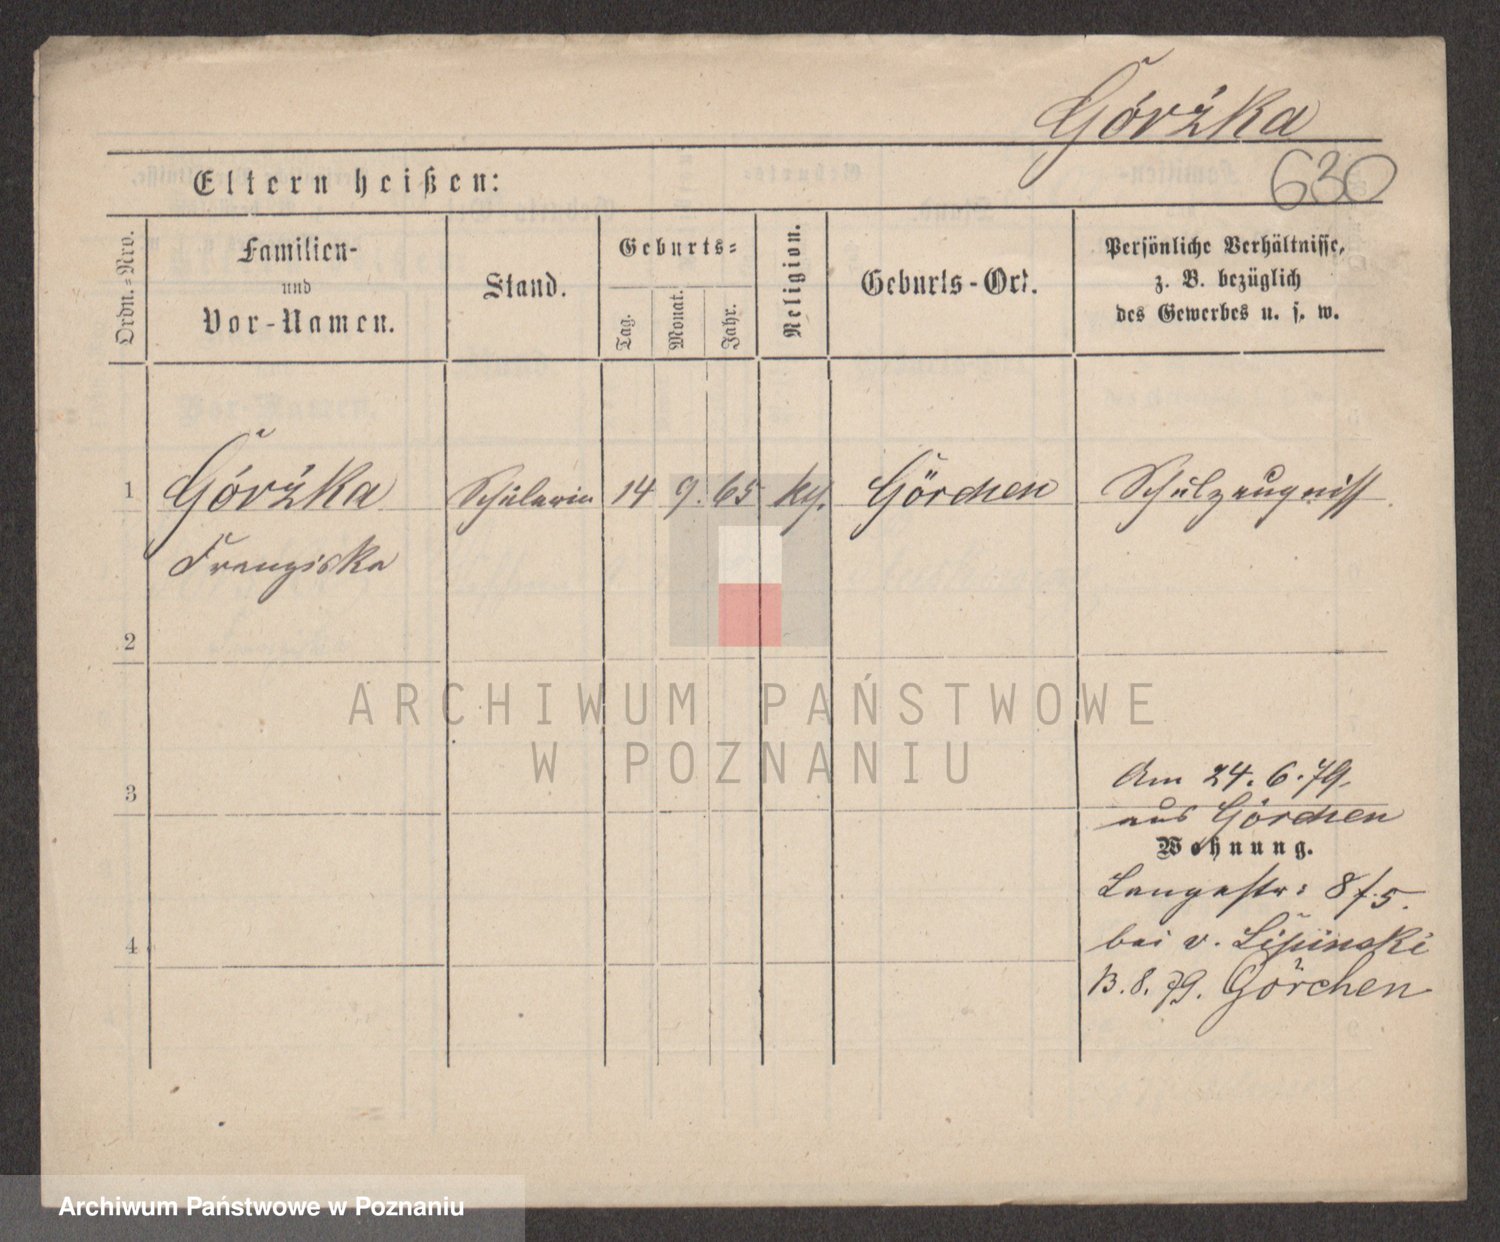 Górźka
630
Eltern heißen:
Ordn.-Nro.
Familien-
und
Vor-Namen.
Stand.
Geburts-
Tag.
Monat.
Jahr.
Religion.
Geburts-Ort.
Persönliche Verhältnisse,
z. B. bezüglich
des Gewerbes u. s. w.
1 Górźka Schülerin 14 9. 65 kth. Görchen Schulzeugniss
Franziska
2
ARCHIWUM PAŃSTWOWE
W POZNANIU
3
Am 24. 6. 79.
aus Görchen
Wohnung.
Langestr: 8/5.
4
bei v. Lipinski
B. 8. 79. Görchen
Archiwum Państwowe w Poznaniu